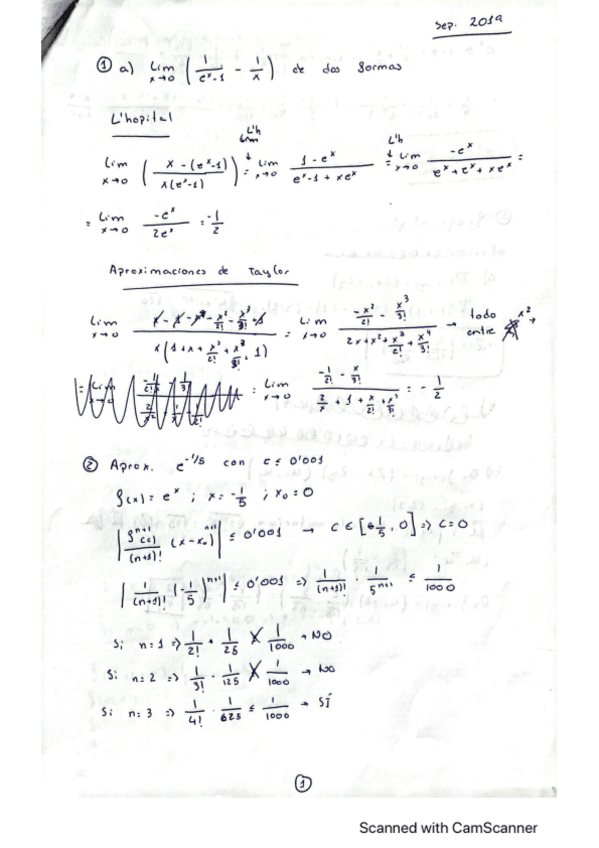 Sep. 2019
① a) Lim x→0 (1/(e^x-1) - 1/x) de dos formas
L'hopital
Lim x→0 ((x-(e^x-1))/(x(e^x-1))) = L'h Lim x→0 (1-e^x)/(e^x-1+xe^x) = L'h Lim x→0 (-e^x)/(e^x+e^x+xe^x) =
= Lim x→0 (-e^x)/(2e^x) = -1/2
Aproximaciones de Taylor
→ todo entre x^2
= Lim x→0 = -1/2
② Aprox. e^(-1/5) con ε ≤ 0'001
f(x) = e^x ; x = -1/5 ; x₀ = 0
|f^(n+1)(c)/(n+1)! (x-x₀)^(n+1)| ≤ 0'001 → c ∈ [-1/5, 0] => c=0
|1/(n+1)! (-1/5)^(n+1)| ≤ 0'001 => 1/(n+1)! · 1/5^(n+1) ≤ 1/1000
Si n=1 => 1/2! · 1/25 ≰ 1/1000 → NO
Si n=2 => 1/3! · 1/125 ≰ 1/1000 → NO
Si n=3 => 1/4! · 1/625 ≤ 1/1000 → SÍ
①
Scanned with CamScanner